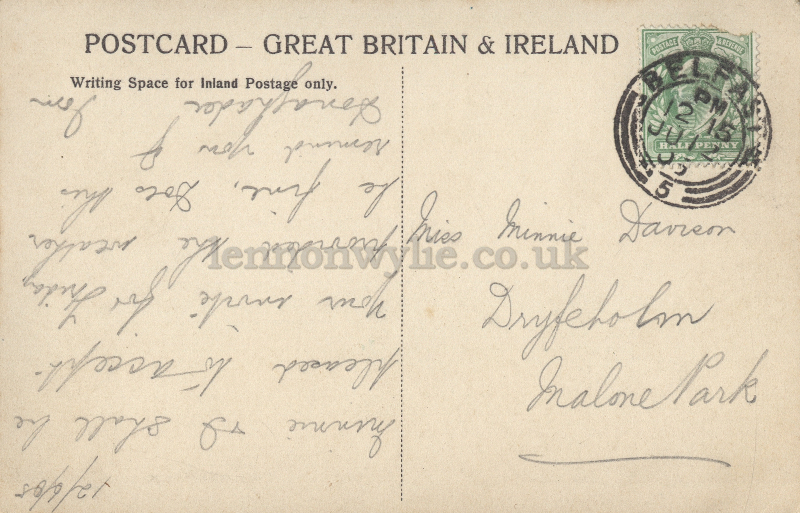 POSTCARD – GREAT BRITAIN & IRELAND
Writing Space for Inland Postage only.
12/6/05
& I shall be
pleased to accept
your invite for Friday
provided the weather
be fine, Does this
remind you of
Donaghadee Tom
POSTAGE & REVENUE
HALFPENNY
BELFAST
PM
12 15
JU 12
05
5
Miss Minnie Davison
Dryfeholm
Malone Park
lennonwylie.co.uk